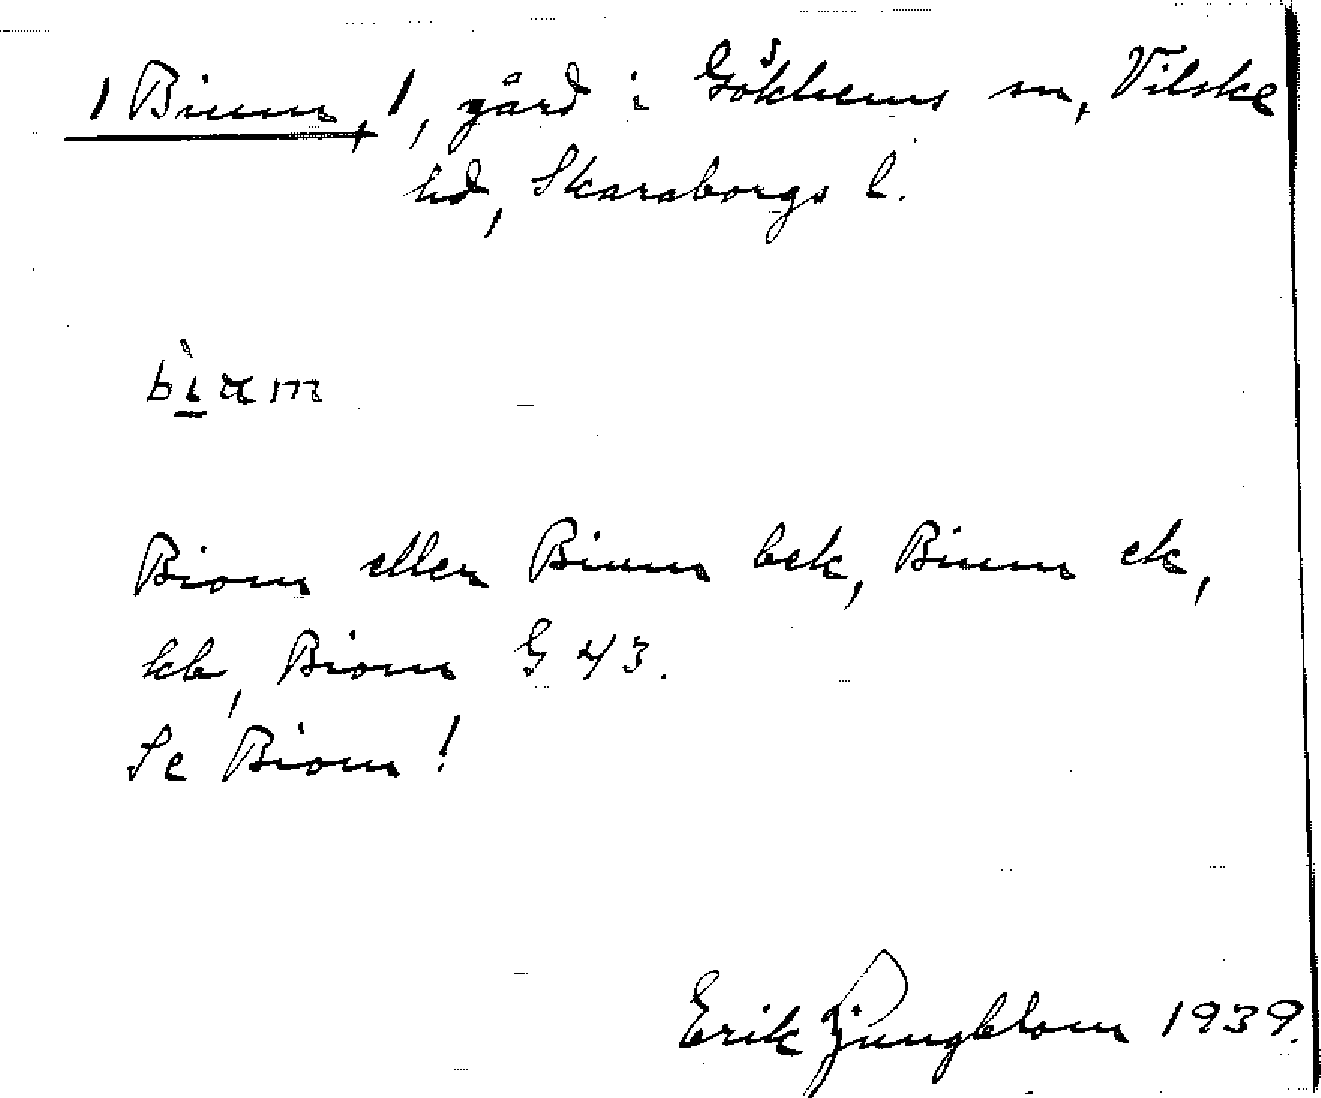 1 Bium, 1, gård i Gökhems sn, Vilske
hd, Skaraborgs l.
bì̠am
Biom eller Bium bek, Bium ek,
kb, Biom G 43.
Se Biom!
Erik Ljungblom 1939.